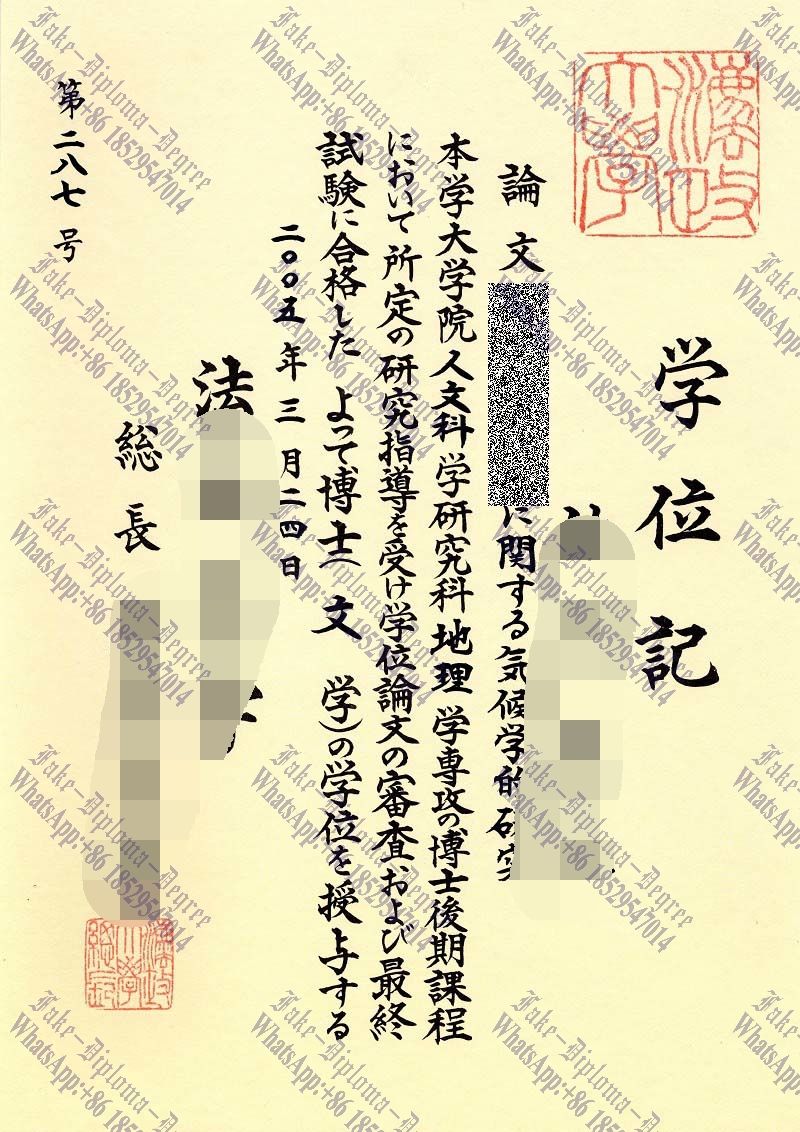 学位記
論文
に関する気候学的研究
本学大学院人文科学研究科地理学専攻の博士後期課程
において所定の研究指導を受け学位論文の審査および最終
試験に合格した よって博士(文 学)の学位を授与する
二〇〇五年三月二四日
法
総長
第二八七号
Fake-Diploma-Degree
WhatsApp:+86 18529547014